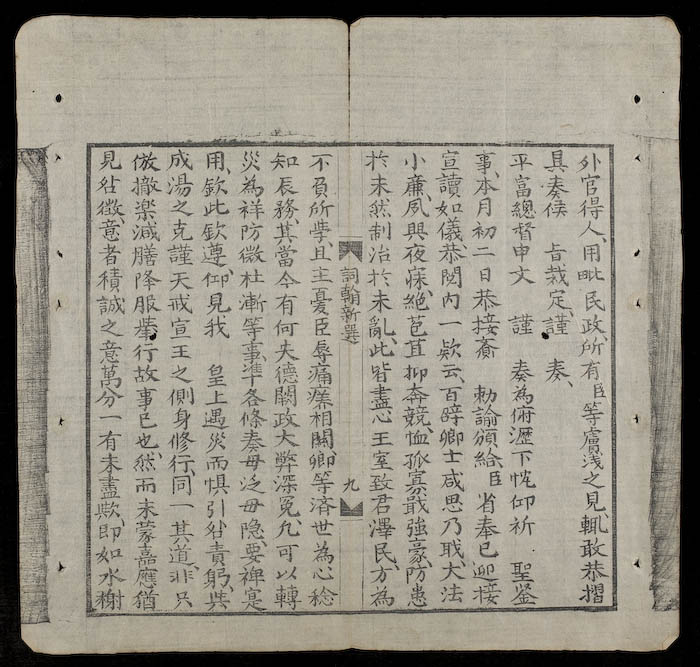 外官得人用毗民政所有臣等膚浅之見輒敢恭摺
具奏候　旨裁定謹　奏
平富總督申文　謹　奏為俯瀝下忱仰祈　聖鉴
事本月初二日恭接齎　勅諭頒給臣省奉已迎接
宣讀如儀恭閱内一欵云百辟卿士咸思乃职大法
小亷夙興夜寐絶苞苴抑奔競恤孤寡戢強豪防患
於未然制治於未亂此皆盡心王室致君澤民方為
詞翰新選　九
不負所孝且主憂臣辱痛癢相關卿等済世為心稔
知辰務其當今有何失德闕政大弊深冤允可以轉
災為祥防微杜漸等事準各條奏毋泛毋隐要裨寔
用欽此欽遵仰見我　皇上遇災而惧引咎責躬與
成湯之克謹天戒宣王之側身修行同一其道非只
倣撤楽減膳降服舉行故事已也然而未蒙嘉應猶
見咎徵意者積誠之意萬分一有未盡欤即如水榭